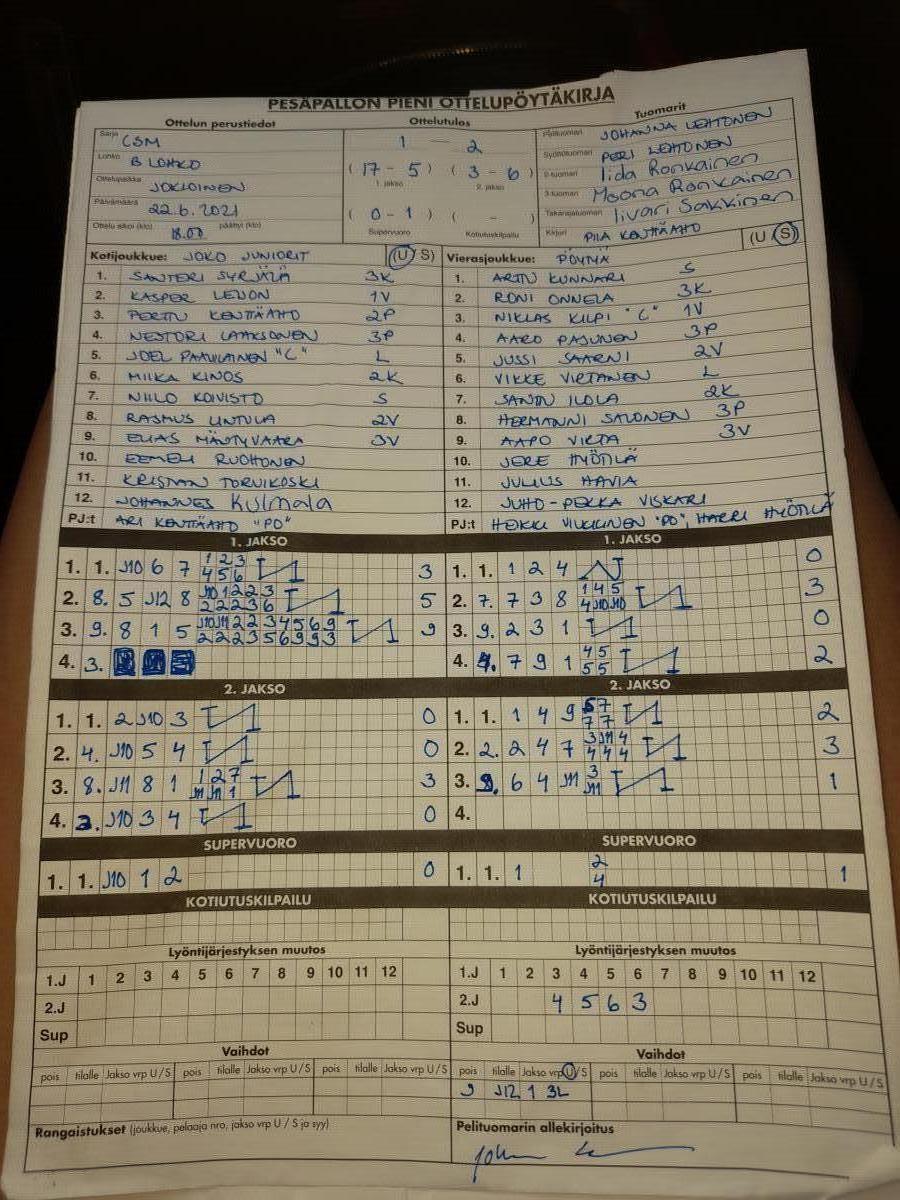 PESÄPALLON PIENI OTTELUPÖYTÄKIRJA
Ottelun perustiedot
Ottelutulos
Tuomarit
Sarja CSM
1 — 2
Pelituomari JOHANNA LEHTONEN
Lohko B LOHKO
(17 - 5) (3 - 6)
Syöttötuomari PERI LEHTONEN
1. jakso 2. jakso
Ottelupaikka JOKIOINEN
2-tuomari Iida Ronkainen
Päivämäärä 22.6.2021
3-tuomari Moona Ronkainen
(0 - 1) ( - )
Takarajatuomari Iivari Sakkinen
Ottelu alkoi (klo) 18.00 päättyi (klo)
Supervuoro Kotiutuskilpailu
Kirjuri PIIA KENTTÄAHO
Kotijoukkue: JOKO JUNIORIT (U S)
Vierasjoukkue: PÖYTYÄ (U S)
1. SANTERI SYRJÄLÄ 3K
1. ARTTU KUNNARI S
2. KASPER LEIJON 1V
2. RONI ONNELA 3K
3. PERTTU KENTTÄAHO 2P
3. NIKLAS KILPI "C" 1V
4. NESTORI LAAKSONEN 3P
4. AARO PAJUNEN 3P
5. JOEL PAAVILAINEN "C" L
5. JUSSI SAARNI 2V
6. MIIKA KINOS 2K
6. VIKKE VIRTANEN L
7. NIILO KOIVISTO S
7. SANTTU ILOLA 2K
8. RASMUS UNTULA 2V
8. HERMANNI SALONEN 3P
9. ELIAS MÄNTYVAARA 3V
9. AAPO VIRTA 3V
10. EEMELI RUOHONEN
10. JERE HYÖTILÄ
11. KRISTIAN TORVIKOSKI
11. JULIUS HAVIA
12. JOHANNES Kulmala
12. JUHO-PEKKA VISKARI
PJ:t ARI KENTTÄAHO "PO"
PJ:t HEIKKI VILKKINEN "PO", HARRI HYÖTILÄ
1. JAKSO
1. JAKSO
1. 1. J10 6 7 1 2 3 3
4 5 6
1. 1. 1 2 4 0
2. 8. 5 J12 8 J10 1 2 2 3 5
2 2 2 3 6
2. 7. 7 3 8 1 4 5 3
4 J10 J10
3. 9. 8 1 5 J10 J11 2 2 3 4 5 6 9 9
2 2 2 3 5 6 9 9 3
3. 9. 2 3 1 0
4. 3.
4. 7 9 1 4 5 2
5 5
2. JAKSO
2. JAKSO
1. 1. 2 J10 3 0
1. 1. 1 4 9 5 7 2
7 7
2. 4. J10 5 4 0
2. 2. 2 4 7 3 J11 4 3
4 4 4
3. 8. J11 8 1 1 2 7 3
J11 J11 1
3. 9. 6 4 J11 3 1
J11
4. 2. J10 3 4 0
4.
SUPERVUORO
SUPERVUORO
1. 1. J10 1 2 0
1. 1. 1 2 1
4
KOTIUTUSKILPAILU
KOTIUTUSKILPAILU
Lyöntijärjestyksen muutos
Lyöntijärjestyksen muutos
1.J 1 2 3 4 5 6 7 8 9 10 11 12
1.J 1 2 3 4 5 6 7 8 9 10 11 12
2.J
2.J 4 5 6 3
Sup
Sup
Vaihdot
Vaihdot
pois tilalle Jakso vrp U / S pois tilalle Jakso vrp U / S pois tilalle Jakso vrp U / S
pois tilalle Jakso vrp U / S pois tilalle Jakso vrp U / S pois tilalle Jakso vrp U / S
9 J12 1 3L
Rangaistukset (joukkue, pelaaja nro, jakso vrp U / S ja syy)
Pelituomarin allekirjoitus